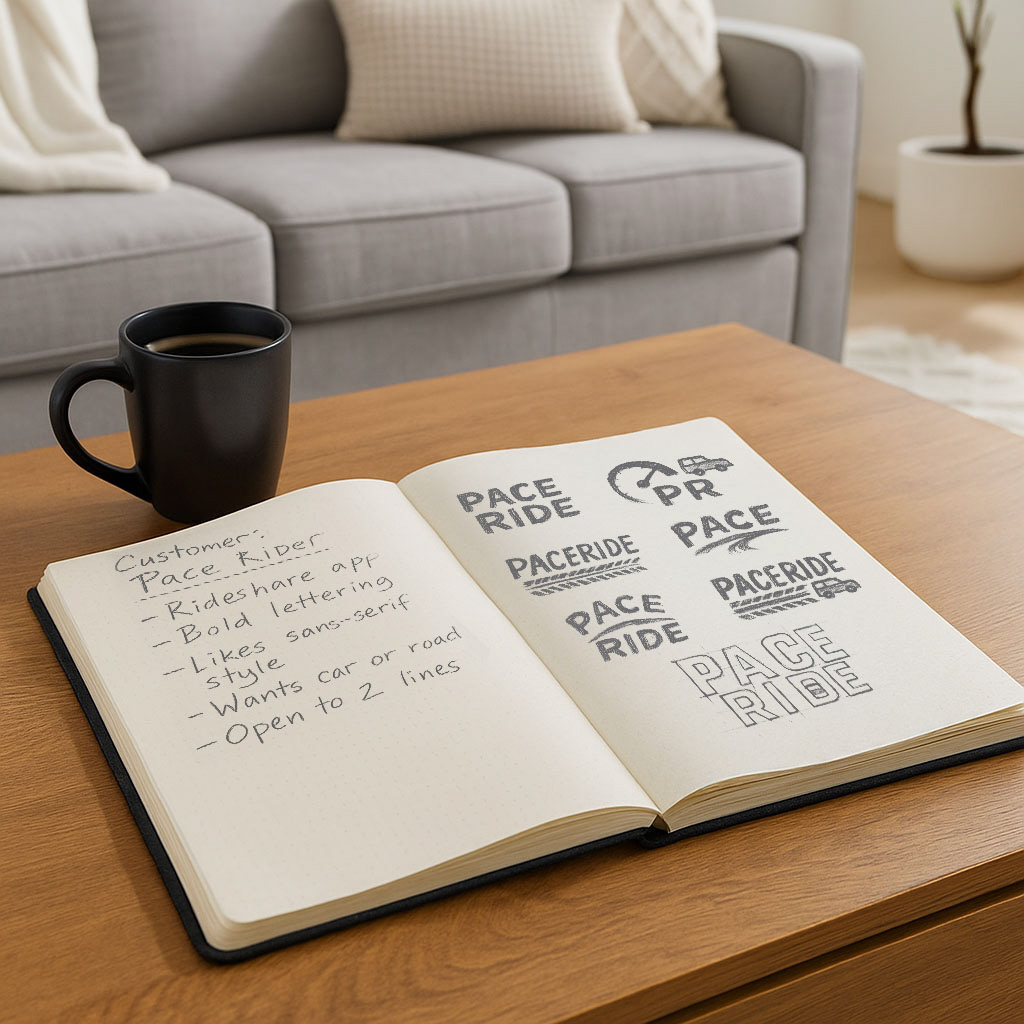 Customer:
Pace Rider
- Rideshare app
- Bold lettering
- Likes sans-serif
style
- Wants car or road
- Open to 2 lines
PACE
RIDE
PR
PACE
PACERIDE
PACERIDE
PACE
RIDE
PACE
RIDE